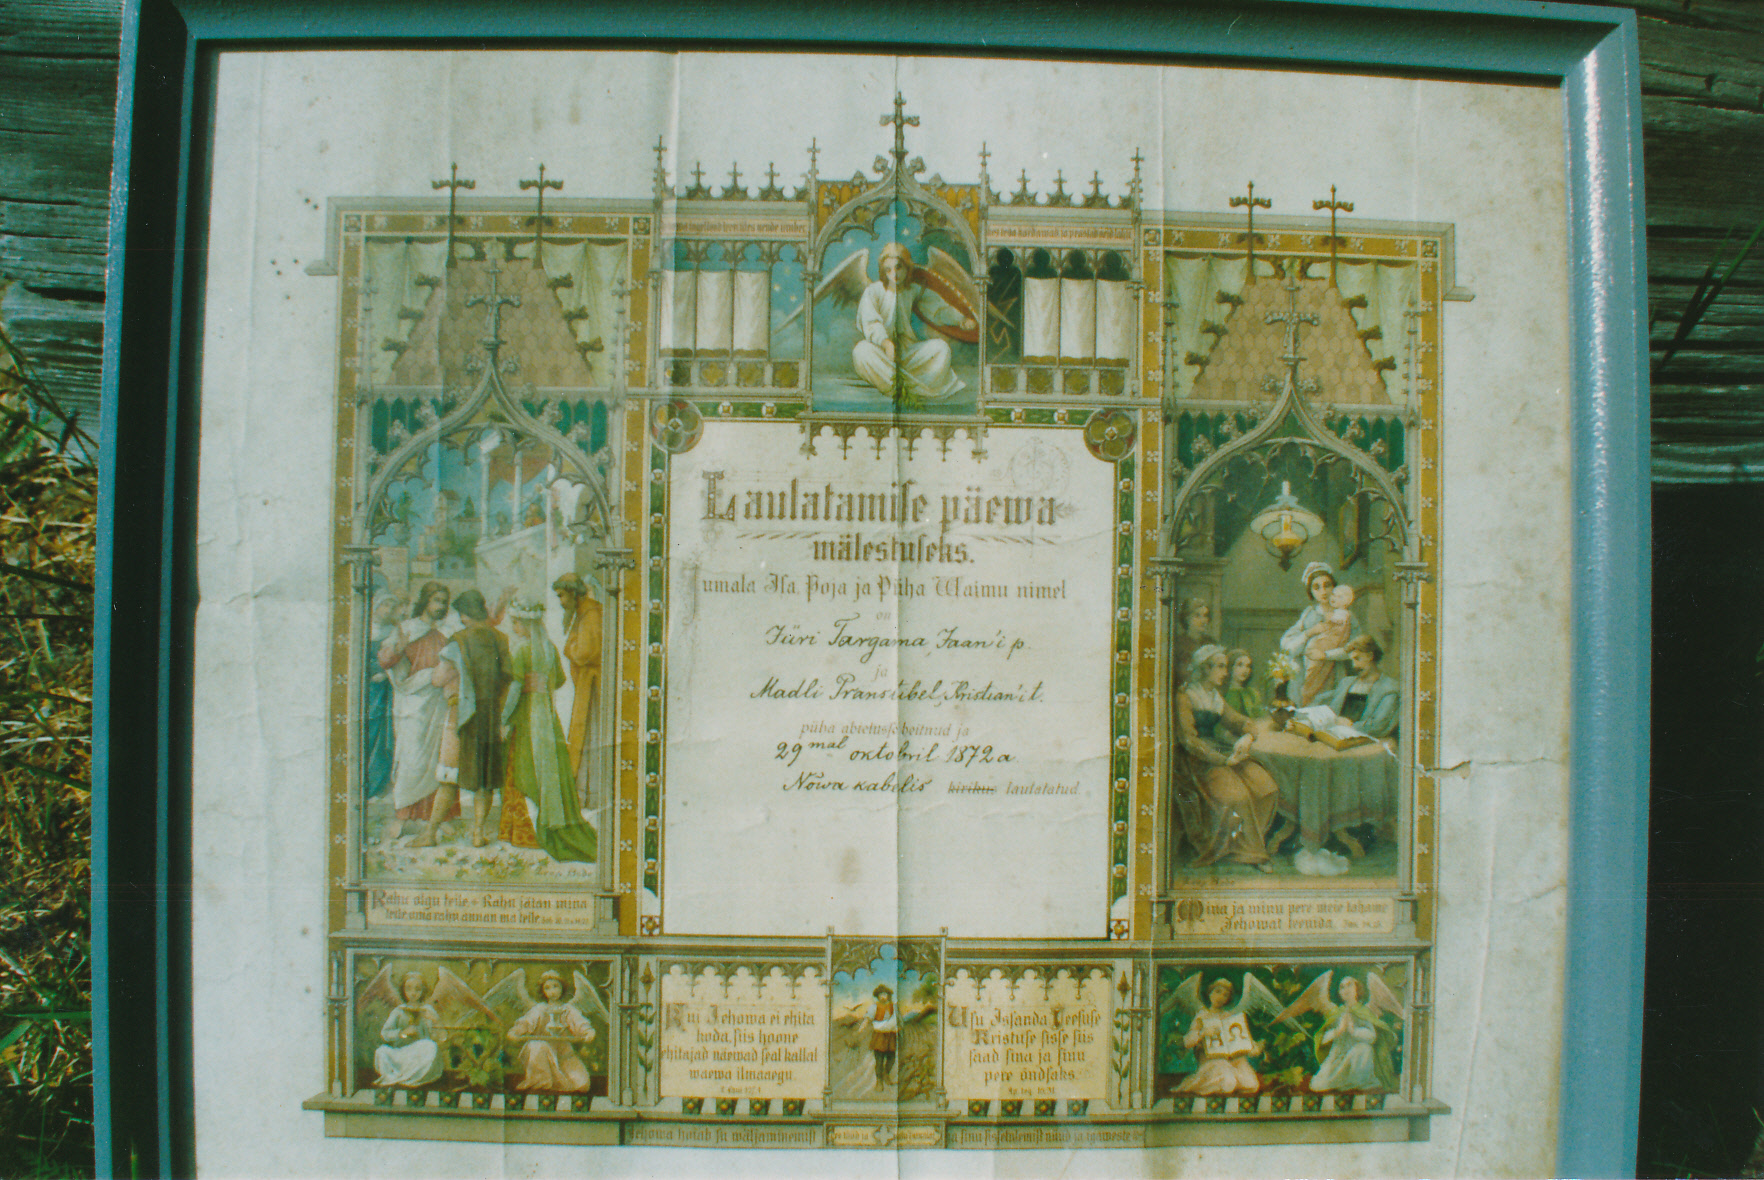 Laulatamise päewa
mälestuseks.
umala Isa, Poja ja Püha Waimu nimel
on
Jüri Targama, Jaan'i p.
ja
Madli Pranstibel, Kristian'i t.
püha abielusse heitnud ja
29mal oktobril 1872 a.
Nõwa kabelis kirikus laulatatud.
Rahu olgu teile. Rahu jätan mina
teile, oma rahu annan ma teile.
Mina ja minu pere meie tahame
Jehowat teenida.
Kui Jehowa ei ehita
koda, siis hoone
ehitajad näewad seal kallal
waewa ilmaaegu.
Usu Issanda Jeesuse
Kristuse sisse siis
saad sina ja sinu
pere õndsaks.
Jehowa hoiab su wäljaminemist
ja sinu sissetulemist nüüd ja igaweste